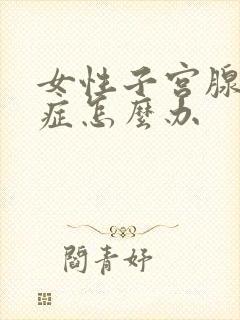 女性子宫腺
症怎麼办
閻青妤